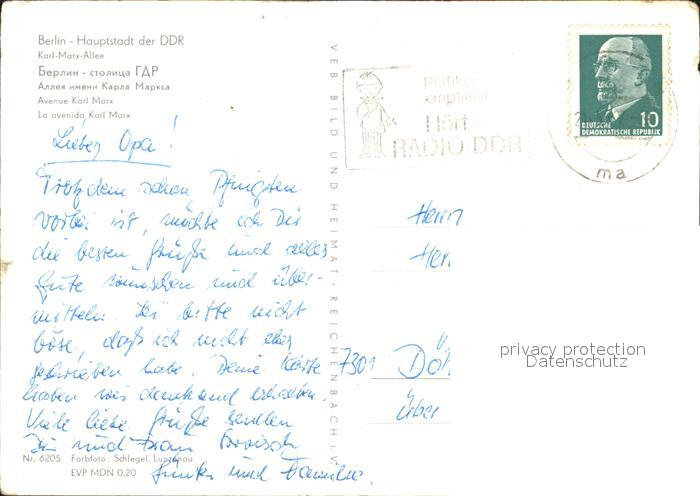 Berlin - Hauptstadt der DDR
Karl-Marx-Allee
Берлин - столица ГДР
Аллея имени Карла Маркса
Avenue Karl Marx
La avenida Karl Marx
Lieber Opa!
Trotzdem schon Pfingsten
vorbei ist, möchte ich Dir
die besten Grüße und alles
Gute wünschen und über-
mitteln. Sei bitte nicht
böse, daß ich nicht eher
geschrieben habe. Deine Karte
haben wir dankend erhalten.
Viele liebe Grüße senden
Dir und Frau
Günter und Familie.
Nr. 6205 Farbfoto: Schlegel, Luppenau
EVP MDN 0,20
VEB BILD UND HEIMAT · REICHENBACH I. V.
Pfiffikus
empfiehlt
Hört
RADIO DDR
10
DEUTSCHE
DEMOKRATISCHE REPUBLIK
ma
Herrn
Her
7301 Dö
Über
privacy protection
Datenschutz